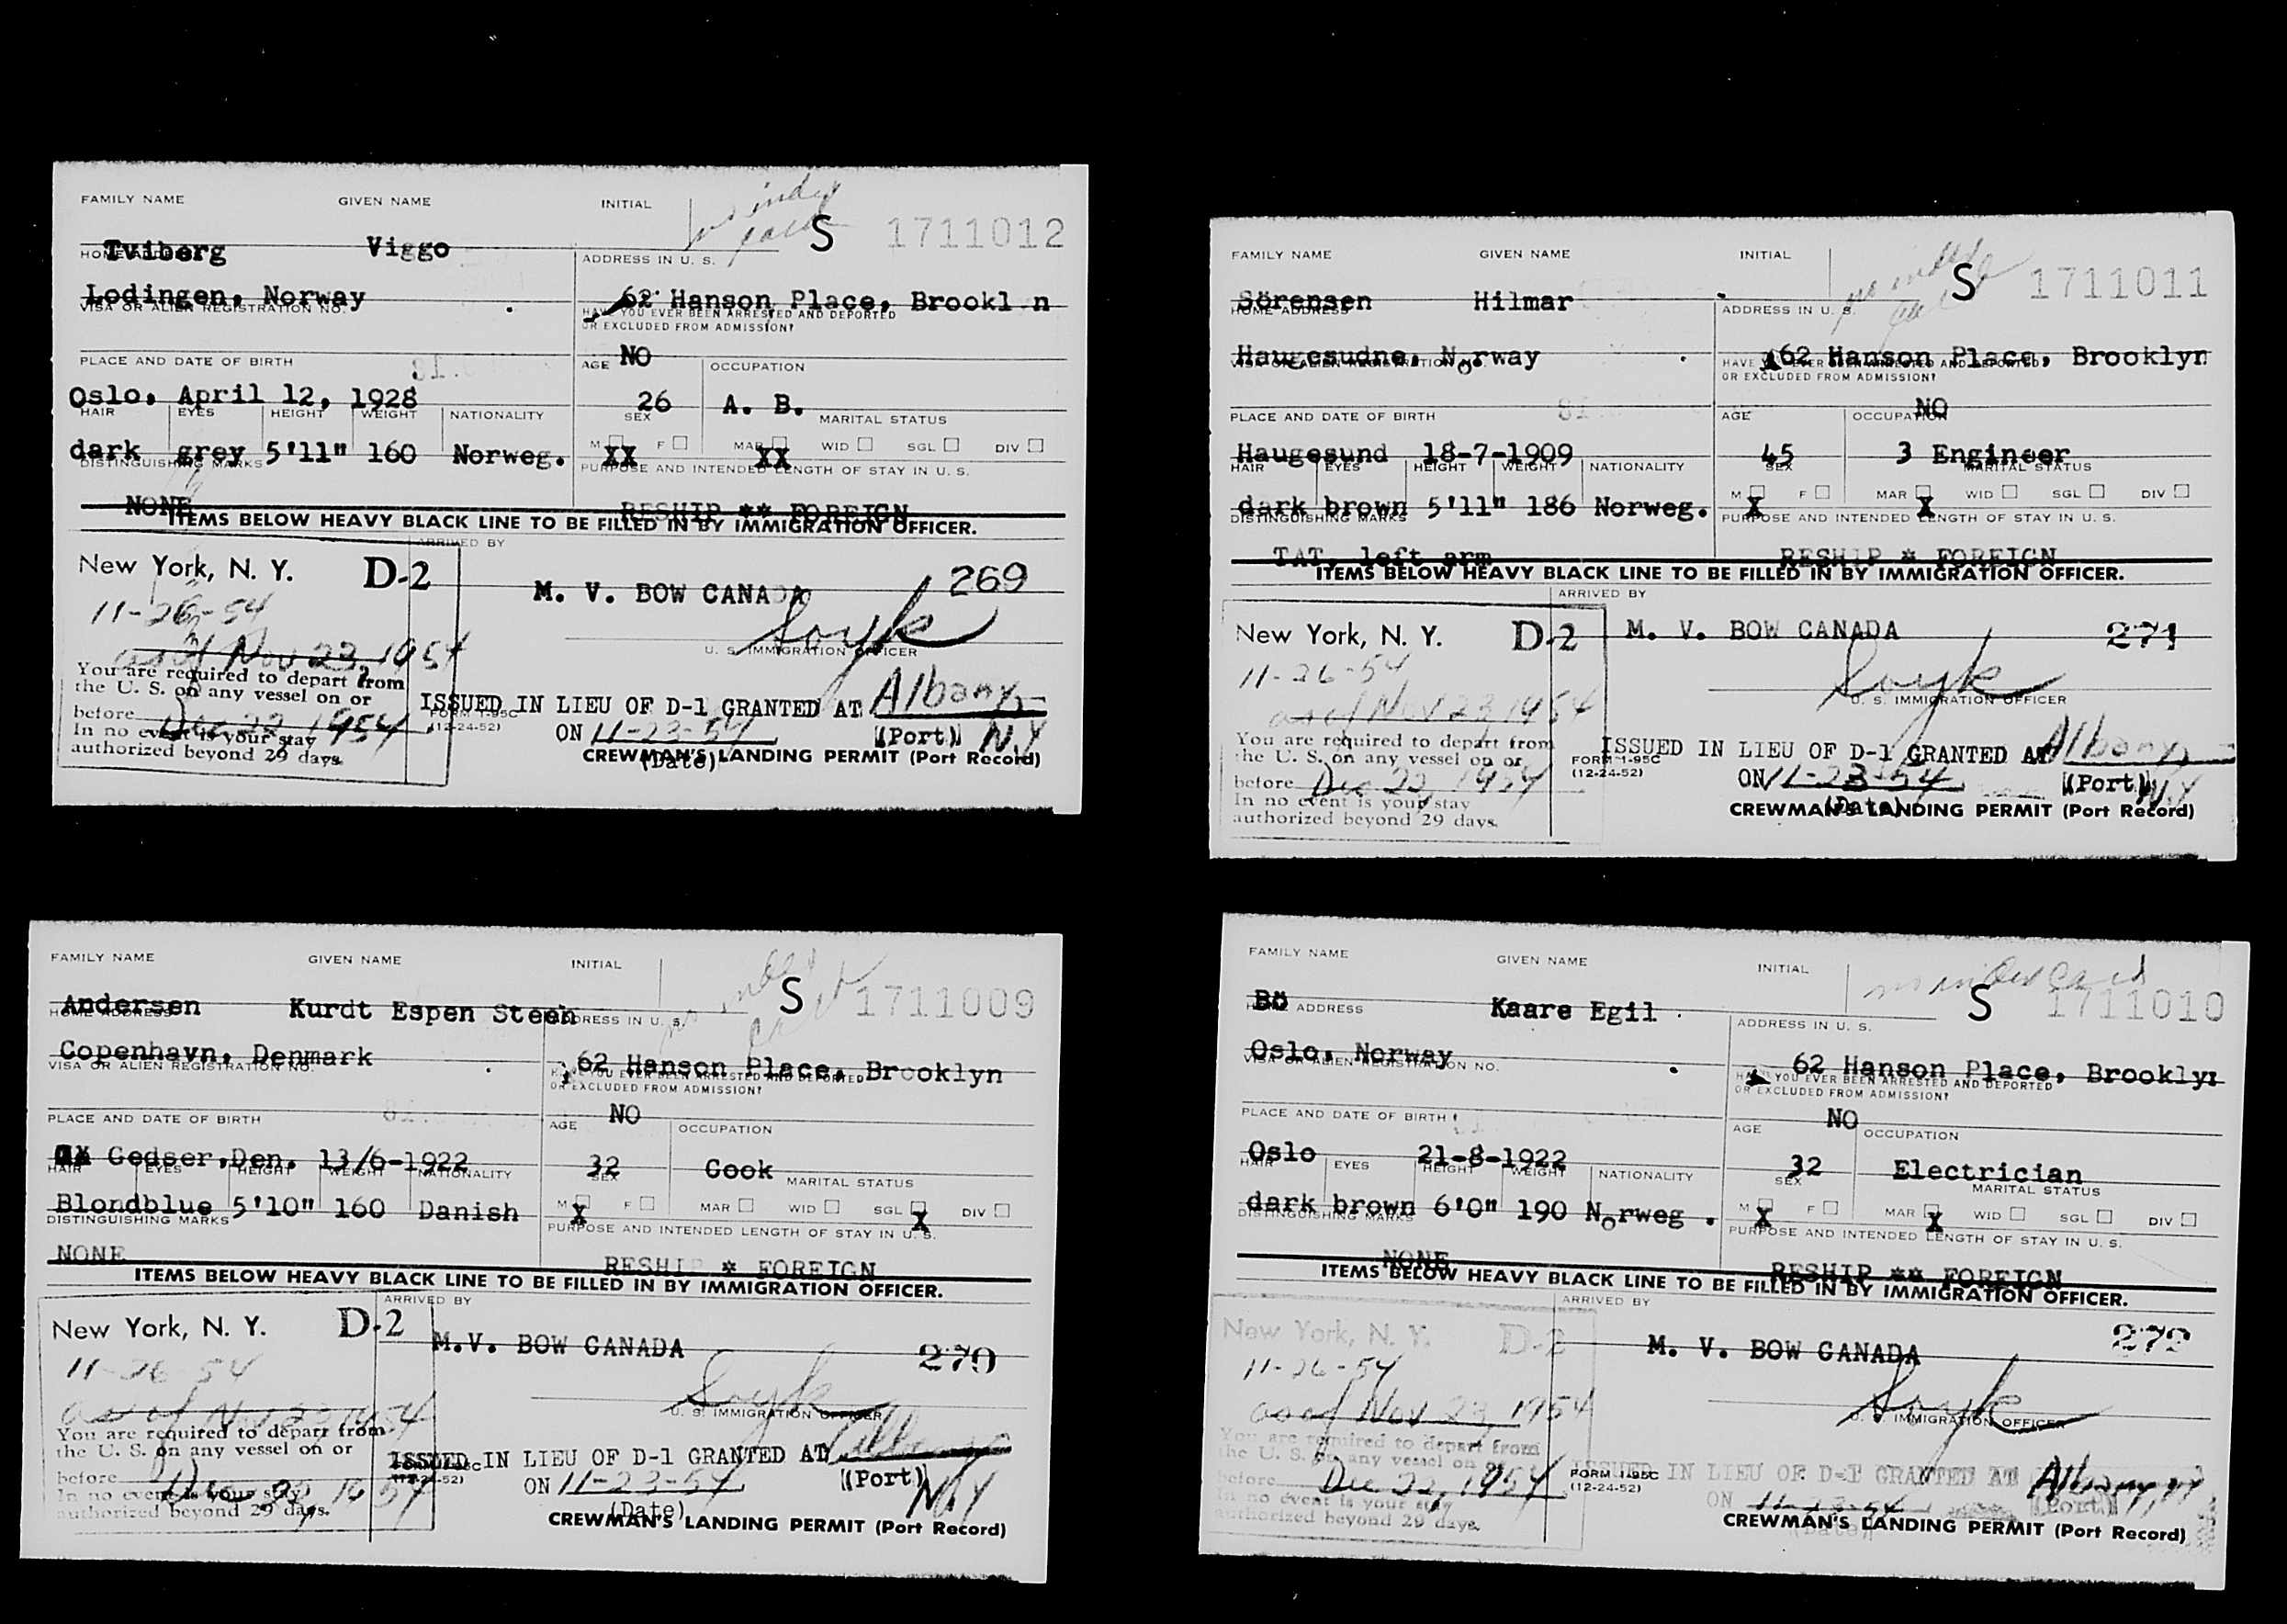 FAMILY NAME GIVEN NAME INITIAL
S 1711012
Tviberg Viggo
HOME ADDRESS ADDRESS IN U. S.
Lodingen, Norway 62 Hanson Place, Brookl n
VISA OR ALIEN REGISTRATION NO. HAVE YOU EVER BEEN ARRESTED AND DEPORTED
OR EXCLUDED FROM ADMISSION?
NO
PLACE AND DATE OF BIRTH AGE OCCUPATION
Oslo, April 12, 1928 26 A. B.
HAIR EYES HEIGHT WEIGHT NATIONALITY SEX MARITAL STATUS
M F MAR WID SGL DIV
dark grey 5'11" 160 Norweg. XX XX
DISTINGUISHING MARKS PURPOSE AND INTENDED LENGTH OF STAY IN U. S.
NONE RESHIP ** FOREIGN
ITEMS BELOW HEAVY BLACK LINE TO BE FILLED IN BY IMMIGRATION OFFICER.
ARRIVED BY
New York, N. Y. D-2 M. V. BOW CANADA 269
11-26-54
as of Nov 23, 1954 Soyk
U. S. IMMIGRATION OFFICER
You are required to depart from
the U. S. on any vessel on or
before Dec 22 1954
In no event is your stay
authorized beyond 29 days.
ISSUED IN LIEU OF D-1 GRANTED AT Albany,
FORM I-95C
(12-24-52)
ON 11-23-54 (Port) N.Y
(Date)
CREWMAN'S LANDING PERMIT (Port Record)
FAMILY NAME GIVEN NAME INITIAL
S 1711011
Sörensen Hilmar
HOME ADDRESS ADDRESS IN U. S.
Haugesudne, Norway 62 Hanson Place, Brooklyn
VISA OR ALIEN REGISTRATION NO. HAVE YOU EVER BEEN ARRESTED AND DEPORTED
OR EXCLUDED FROM ADMISSION?
NO
PLACE AND DATE OF BIRTH AGE OCCUPATION
Haugesund 18-7-1909 45 3 Engineer
HAIR EYES HEIGHT WEIGHT NATIONALITY SEX MARITAL STATUS
M F MAR WID SGL DIV
dark brown 5'11" 186 Norweg. X X
DISTINGUISHING MARKS PURPOSE AND INTENDED LENGTH OF STAY IN U. S.
TAT, left arm RESHIP * FOREIGN
ITEMS BELOW HEAVY BLACK LINE TO BE FILLED IN BY IMMIGRATION OFFICER.
ARRIVED BY
New York, N. Y. D-2 M. V. BOW CANADA 271
11-26-54
as of Nov 23 1954 Soyk
U. S. IMMIGRATION OFFICER
You are required to depart from
the U. S. on any vessel on or
before Dec 22, 1954
In no event is your stay
authorized beyond 29 days.
ISSUED IN LIEU OF D-1 GRANTED AT Albany,
FORM I-95C
(12-24-52)
ON 11-23-54 (Port) N.Y
(Date)
CREWMAN'S LANDING PERMIT (Port Record)
FAMILY NAME GIVEN NAME INITIAL
S 1711009
Andersen Kurdt Espen Steen
HOME ADDRESS ADDRESS IN U. S.
Copenhavn, Denmark 62 Hanson Place, Brooklyn
VISA OR ALIEN REGISTRATION NO. HAVE YOU EVER BEEN ARRESTED AND DEPORTED
OR EXCLUDED FROM ADMISSION?
NO
PLACE AND DATE OF BIRTH AGE OCCUPATION
Gedser,Den. 13/6-1922 32 Cook
HAIR EYES HEIGHT WEIGHT NATIONALITY SEX MARITAL STATUS
M F MAR WID SGL DIV
Blondblue 5'10" 160 Danish X X
DISTINGUISHING MARKS PURPOSE AND INTENDED LENGTH OF STAY IN U. S.
NONE RESHIP * FOREIGN
ITEMS BELOW HEAVY BLACK LINE TO BE FILLED IN BY IMMIGRATION OFFICER.
ARRIVED BY
New York, N. Y. D-2 M.V. BOW CANADA 270
11-26-54
as of Nov 23 1954 Soyk
U. S. IMMIGRATION OFFICER
You are required to depart from
the U. S. on any vessel on or
before Dec 22, 1954
In no event is your stay
authorized beyond 29 days.
ISSUED IN LIEU OF D-1 GRANTED AT Albany
FORM I-95C
(12-24-52)
ON 11-23-54 (Port) N.Y
(Date)
CREWMAN'S LANDING PERMIT (Port Record)
FAMILY NAME GIVEN NAME INITIAL
S 1711010
Bö Kaare Egil
HOME ADDRESS ADDRESS IN U. S.
Oslo, Norway 62 Hanson Place, Brooklyn
VISA OR ALIEN REGISTRATION NO. HAVE YOU EVER BEEN ARRESTED AND DEPORTED
OR EXCLUDED FROM ADMISSION?
NO
PLACE AND DATE OF BIRTH AGE OCCUPATION
Oslo 21-8-1922 32 Electrician
HAIR EYES HEIGHT WEIGHT NATIONALITY SEX MARITAL STATUS
M F MAR WID SGL DIV
dark brown 6'0" 190 Norweg . X X
DISTINGUISHING MARKS PURPOSE AND INTENDED LENGTH OF STAY IN U. S.
NONE RESHIP ** FOREIGN
ITEMS BELOW HEAVY BLACK LINE TO BE FILLED IN BY IMMIGRATION OFFICER.
ARRIVED BY
New York, N. Y. D-2 M. V. BOW CANADA 272
11-26-54
as of Nov 23, 1954 Soyk
U. S. IMMIGRATION OFFICER
You are required to depart from
the U. S. on any vessel on or
before Dec 22, 1954
In no event is your stay
authorized beyond 29 days.
ISSUED IN LIEU OF D-1 GRANTED AT Albany, NY
FORM I-95C
(12-24-52)
ON 11-23-54 (Port)
(Date)
CREWMAN'S LANDING PERMIT (Port Record)